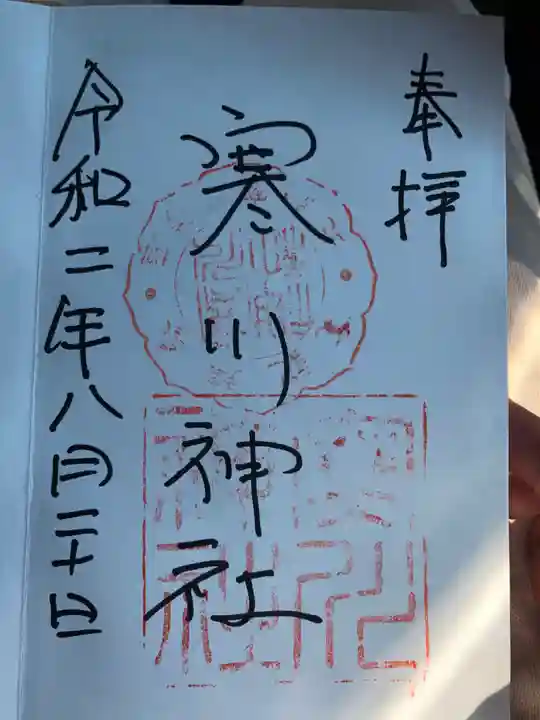 奉拝
寒川神社
令和二年八月二十日